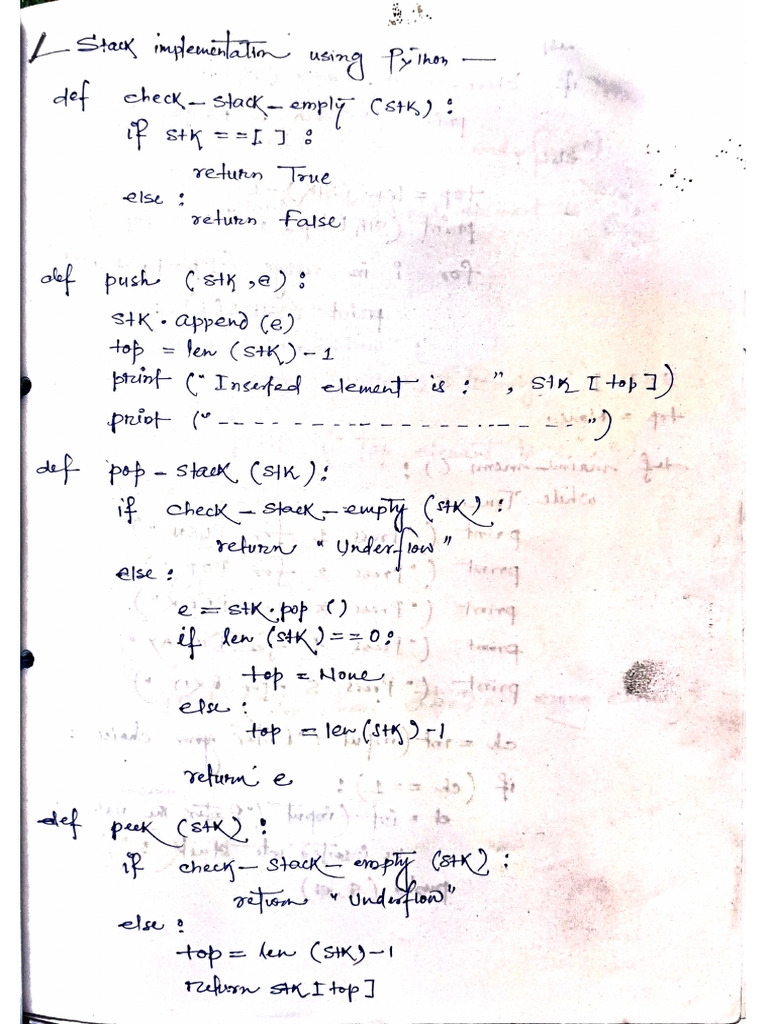 Stack implementation using Python —
def check-stack-empty (stk):
if stk == []:
return True
else:
return False
def push (stk, e):
stk.append(e)
top = len (stk) - 1
print ("Inserted element is : ", stk [top])
print ("--------------------")
def pop-stack (stk):
if check-stack-empty (stk):
return "Underflow"
else:
e = stk.pop ()
if len (stk) == 0:
top = None
else:
top = len(stk) - 1
return e
def peek (stk):
if check-stack-empty (stk):
return "Underflow"
else:
top = len (stk) - 1
return stk [top]